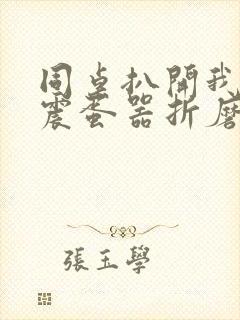 同桌扒開我
震蛋器折磨
張玉學